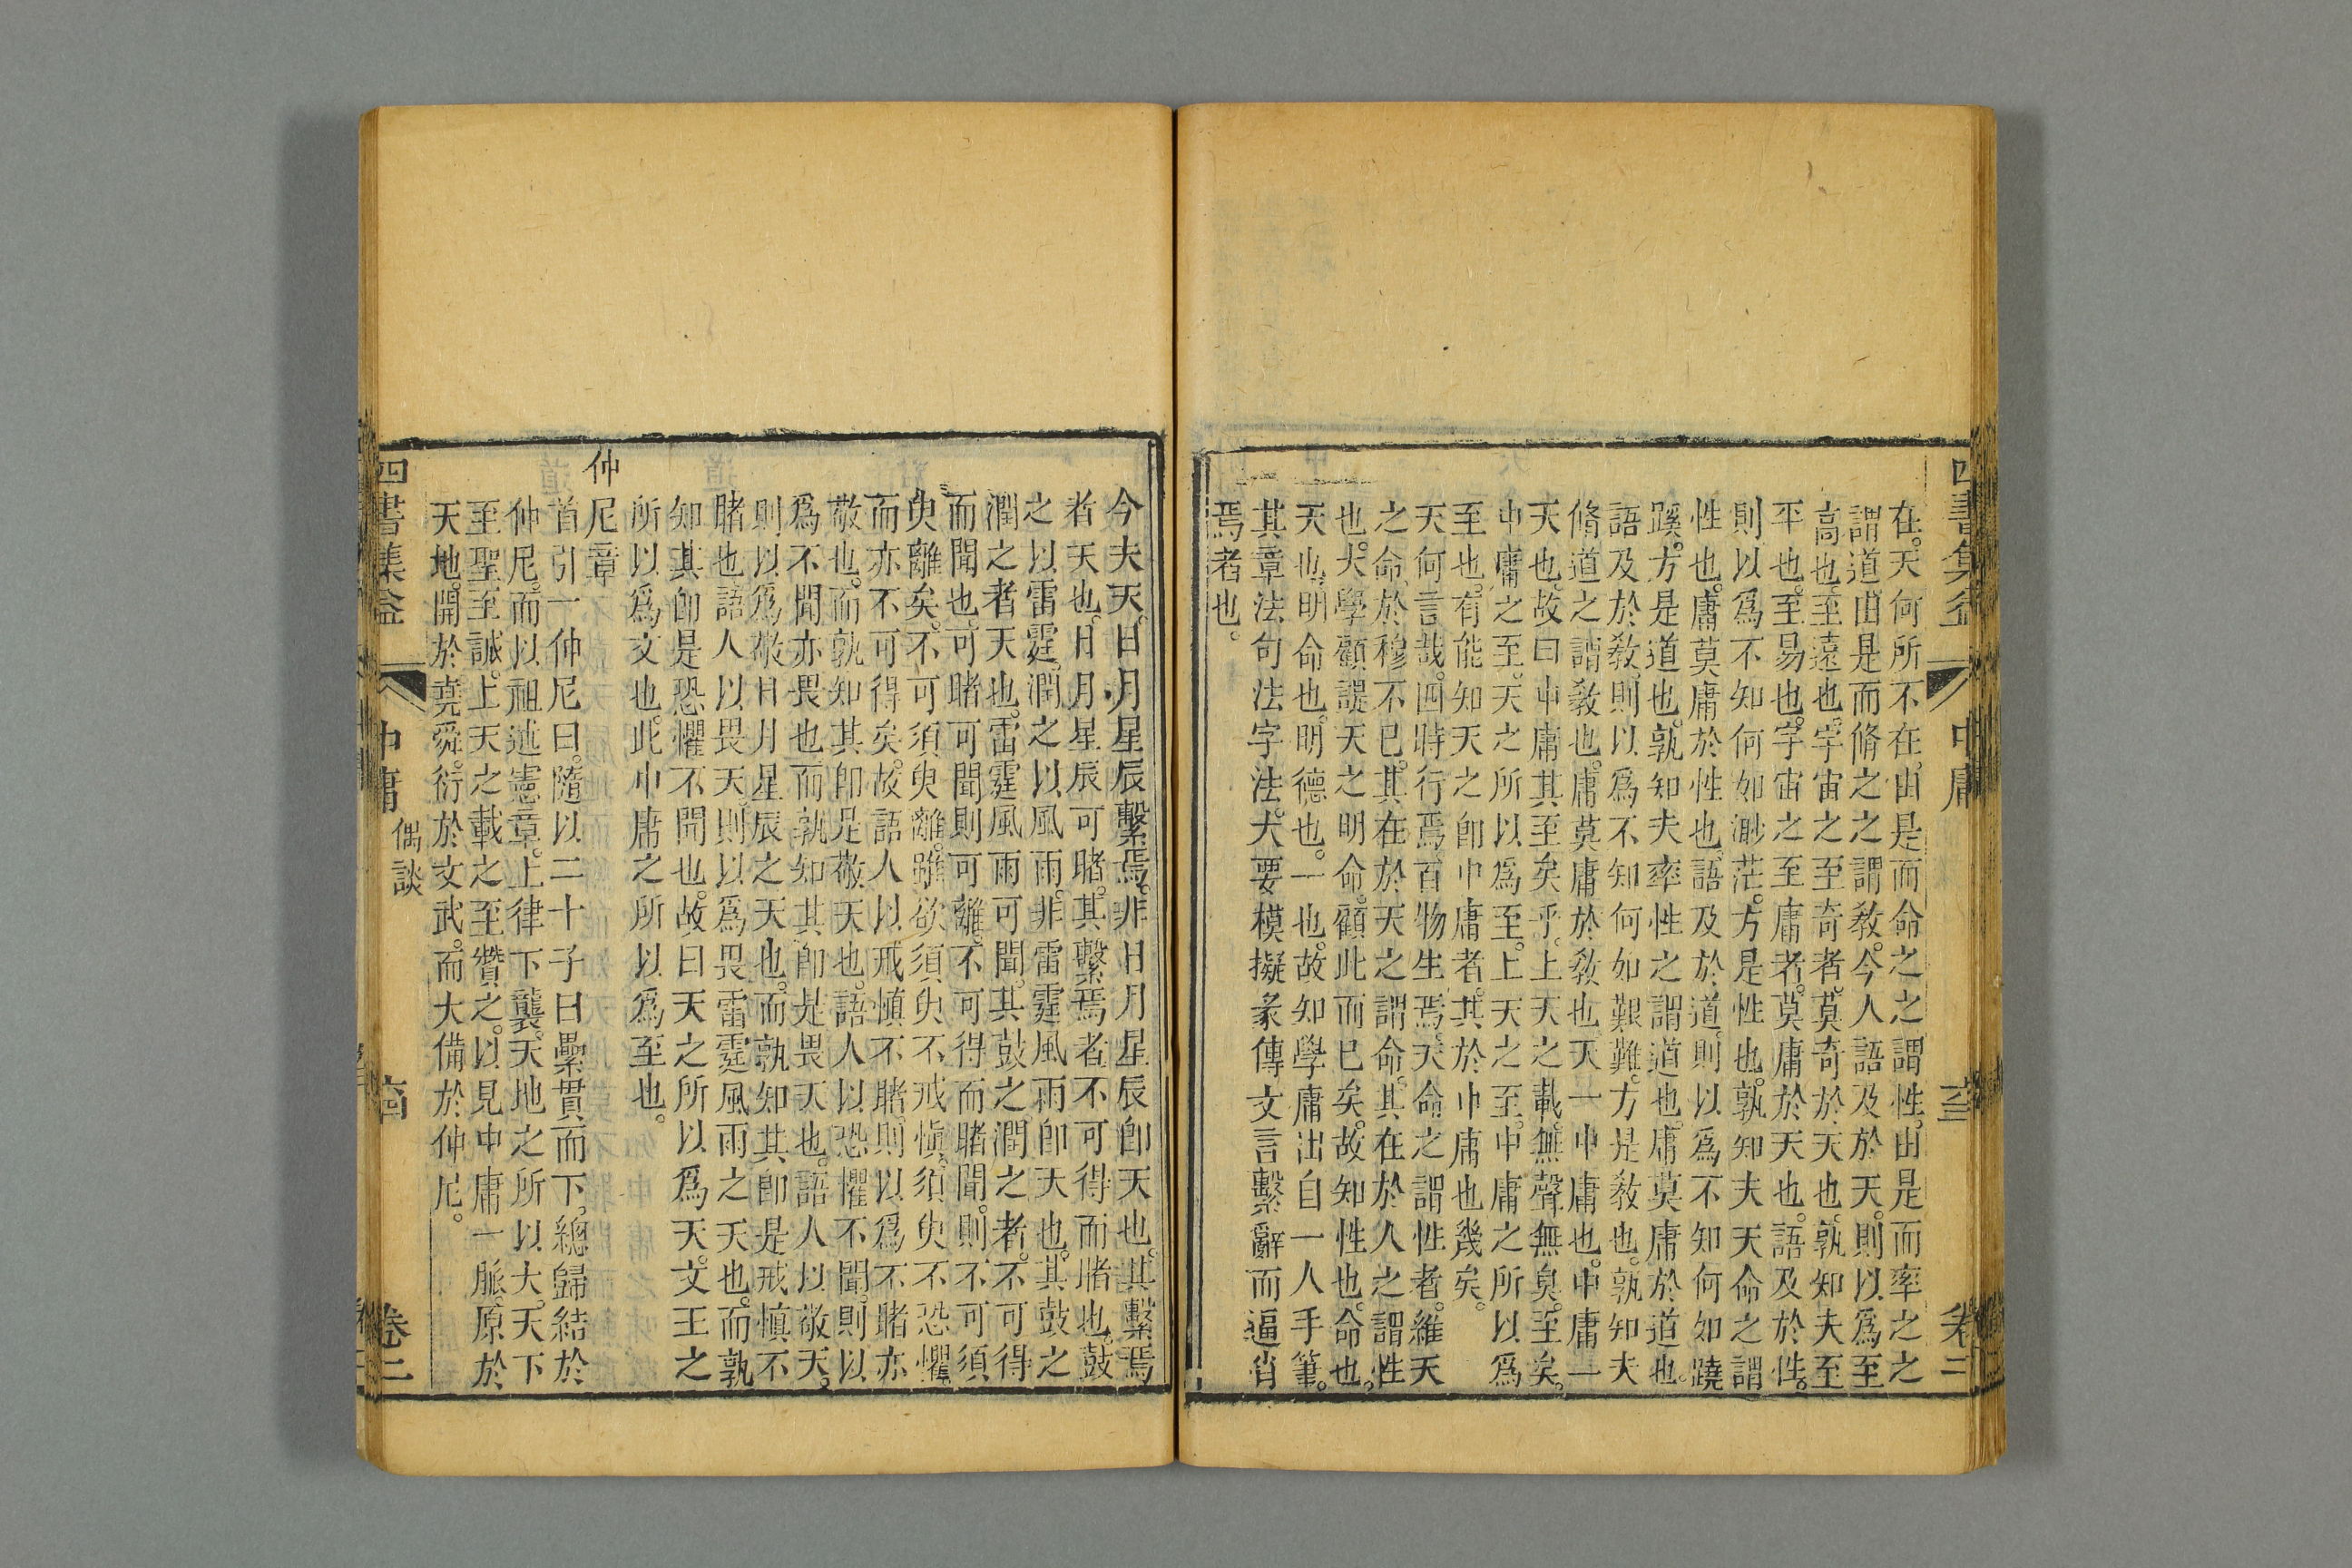 四書集益
中庸
六三
卷二
在。天何所不在、由是而命之之謂性、由是而率之之
謂道、由是而脩之之謂教。今人語及於天。則以爲至
高也、至遠也。宇宙之至奇者、莫奇於天也、孰知夫至
平也。至易也。宇宙之至庸者。莫庸於天也。語及於性。
則以爲不知何如渺茫。方是性也。孰知夫天命之謂
性也。庸莫庸於性也。語及於道。則以爲不知何如蹺
蹊。方是道也。孰知夫率性之謂道也。庸莫庸於道也。
語及於教。則以爲不知何如艱難。方是教也。孰知夫
脩道之謂教也。庸莫庸於教也。天一中庸也。中庸一
天也。故曰中庸其至矣乎。上天之載。無聲無臭。至矣。
中庸之至。天之所以爲至。上天之至。中庸之所以爲
至也。有能知天之卽中庸者。其於中庸也幾矣。
天何言哉。四時行焉、百物生焉。天命之謂性者。維天
之命、於穆不已。其在於天之謂命。其在於人之謂性
也。大學顧諟天之明命。顧此而已矣。故知性也。命也。
天也、明命也。明德也。一也。故知學庸出自一人手筆。
其章法句法字法。大要模擬彖傳文言繫辭而逼肖
焉者也。
今夫天。日月星辰繫焉。非日月星辰卽天也。其繫焉
者天也。日月星辰可睹。其繫焉者不可得而睹也。鼓
之以雷霆。潤之以風雨。非雷霆風雨卽天也。其鼓之
潤之者天也。雷霆風雨可聞。其鼓之潤之者。不可得
而聞也。可睹可聞則可離。不可得而睹聞。則不可須
臾離矣。不可須臾離。雖欲須臾不戒愼。須臾不恐懼
而亦不可得矣。故語人以戒愼不睹。則以爲不睹亦
敬也。而孰知其卽是敬天也。語人以恐懼不聞。則以
爲不聞亦畏也。而孰知其卽是畏天也。語人以敬天。
則以爲敬日月星辰之天也。而孰知其卽是戒愼不
睹也。語人以畏天。則以爲畏雷霆風雨之天也。而孰
知其卽是恐懼不聞也。故曰天之所以爲天。文王之
所以爲文也。此中庸之所以爲至也。
仲尼章
首引一仲尼曰。隨以二十子曰纍貫而下、總歸結於
仲尼。而以祖述憲章。上律下襲。天地之所以大。天下
至聖至誠。上天之載之至贊之。以見中庸一脈。原於
天地。開於堯舜。衍於文武。而大備於仲尼。
四書集益
中庸
偶談
卷二